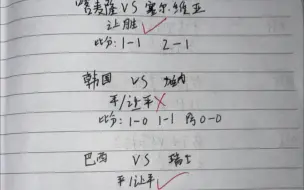 喀麦隆 VS 塞尔维亚
让胜
比分: 1-1 2-1
韩国 VS 加纳
平/让平
比分: 1-0 1-1 防 0-0
巴西 VS 瑞士
平/让平